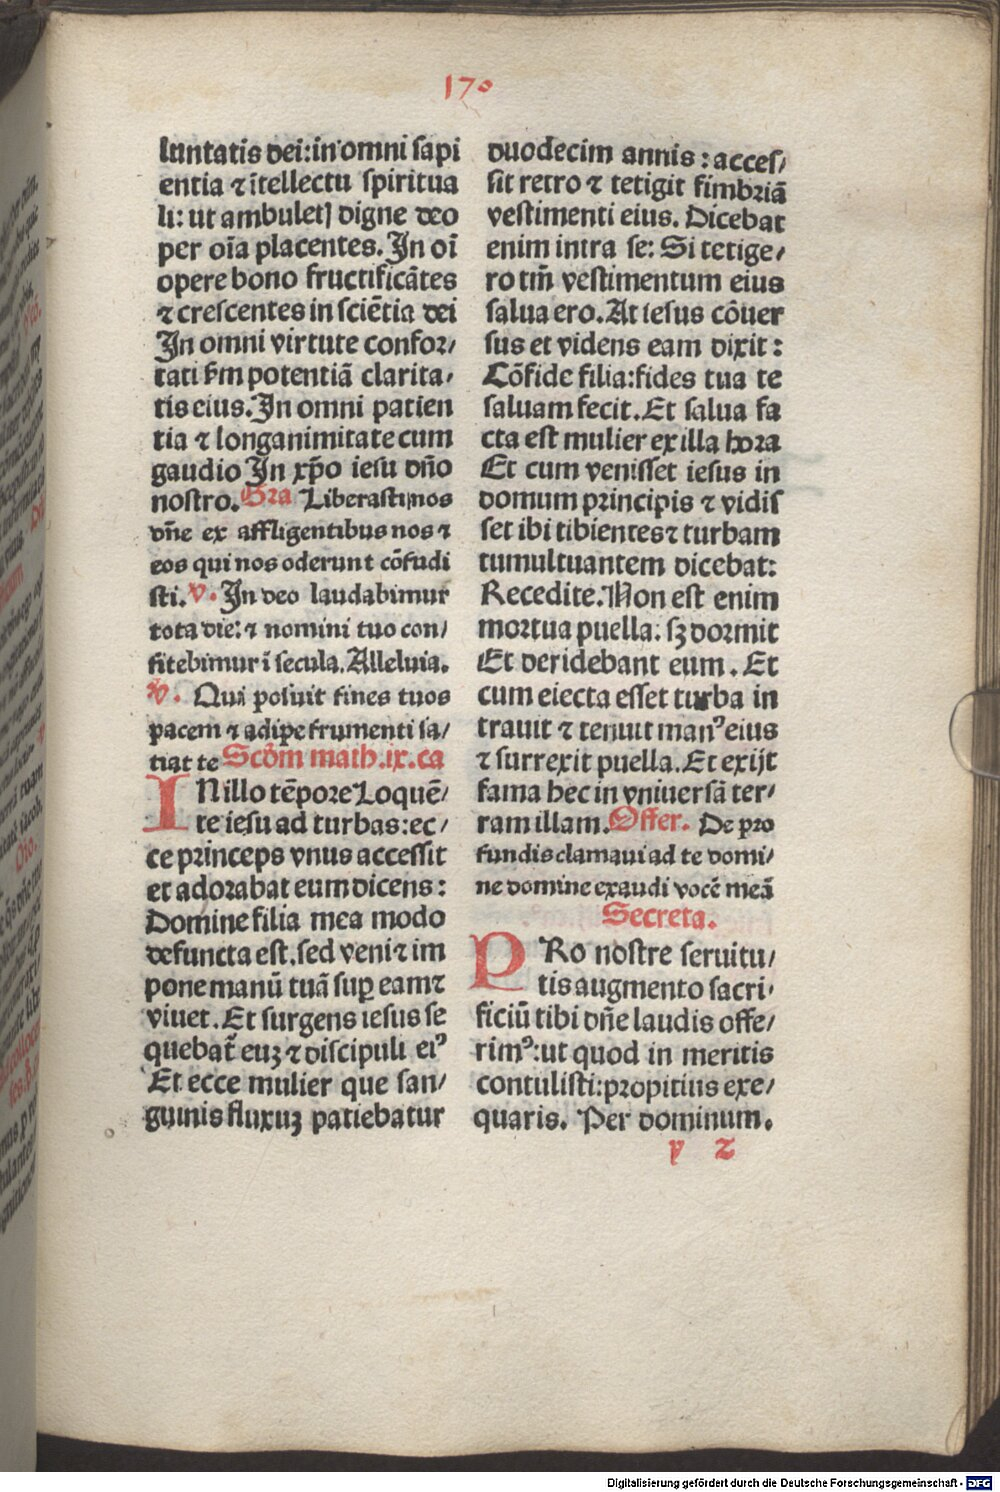 170
luntatis dei: in omni sapi
entia ⁊ ītellectu spiritua
li: ut ambuletꝭ digne deo
per oīa placentes. In oī
opere bono fructificātes
⁊ crescentes in sciētia dei
In omni virtute confor⸗
tati ẜm potentiā clarita⸗
tis eius. In omni patien
tia ⁊ longanimitate cum
gaudio In xp̄o iesu dn̄o
nostro. Gra Liberasti nos
dn̄e ex affligentibus nos ⁊
eos qui nos oderunt cōfudi
sti. v. In deo laudabimur
tota die: ⁊ nomini tuo con⸗
fitebimur ī secula. Alleluia.
v. Qui posuit fines tuos
pacem ⁊ adipe frumenti sa⸗
tiat te Scd̄m math. ix. ca
IN illo tēpore Loquē⸗
te iesu ad turbas: ec⸗
ce princeps vnus accessit
et adorabat eum dicens:
Domine filia mea modo
defuncta est. sed veni ⁊ im
pone manū tuā sup̱ eam ⁊
viuet. Et surgens iesus se
quebat̄ euꝫ ⁊ discipuli eiꝰ
Et ecce mulier que san⸗
guinis fluxuꝫ patiebatur
duodecim annis: acces⸗
sit retro ⁊ tetigit fimbriā
vestimenti eius. Dicebat
enim intra se: Si tetige⸗
ro tm̄ vestimentum eius
salua ero. At iesus cōuer
sus et videns eam dixit:
Cōfide filia: fides tua te
saluam fecit. Et salua fa
cta est mulier ex illa hora
Et cum venisset iesus in
domum principis ⁊ vidis
set ibi tibientes ⁊ turbam
tumultuantem dicebat:
Recedite. Non est enim
mortua puella: sꝫ dormit
Et deridebant eum. Et
cum eiecta esset turba in
trauit ⁊ tenuit manꝰ eius
⁊ surrexit puella. Et exijt
fama hec in vniuersā ter⸗
ram illam. Offer. De pro
fundis clamaui ad te domi⸗
ne domine exaudi vocē meā
Secreta.
PRo nostre seruitu⸗
tis augmento sacri⸗
ficiū tibi dn̄e laudis offe⸗
rimꝰ: ut quod in meritis
contulisti: propitius exe⸗
quaris. Per dominum.
y 2
Digitalisierung gefördert durch die Deutsche Forschungsgemeinschaft - DFG